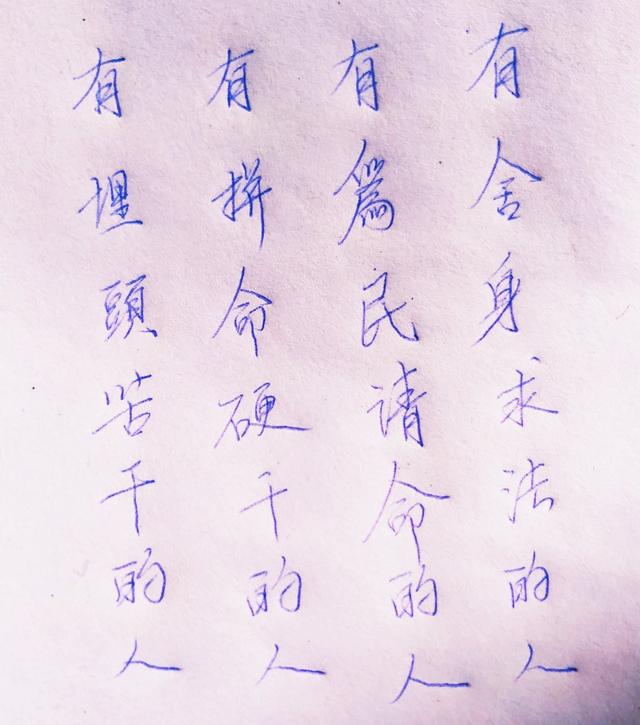 有埋頭苦干的人
有拼命硬干的人
有爲民请命的人
有舍身求法的人